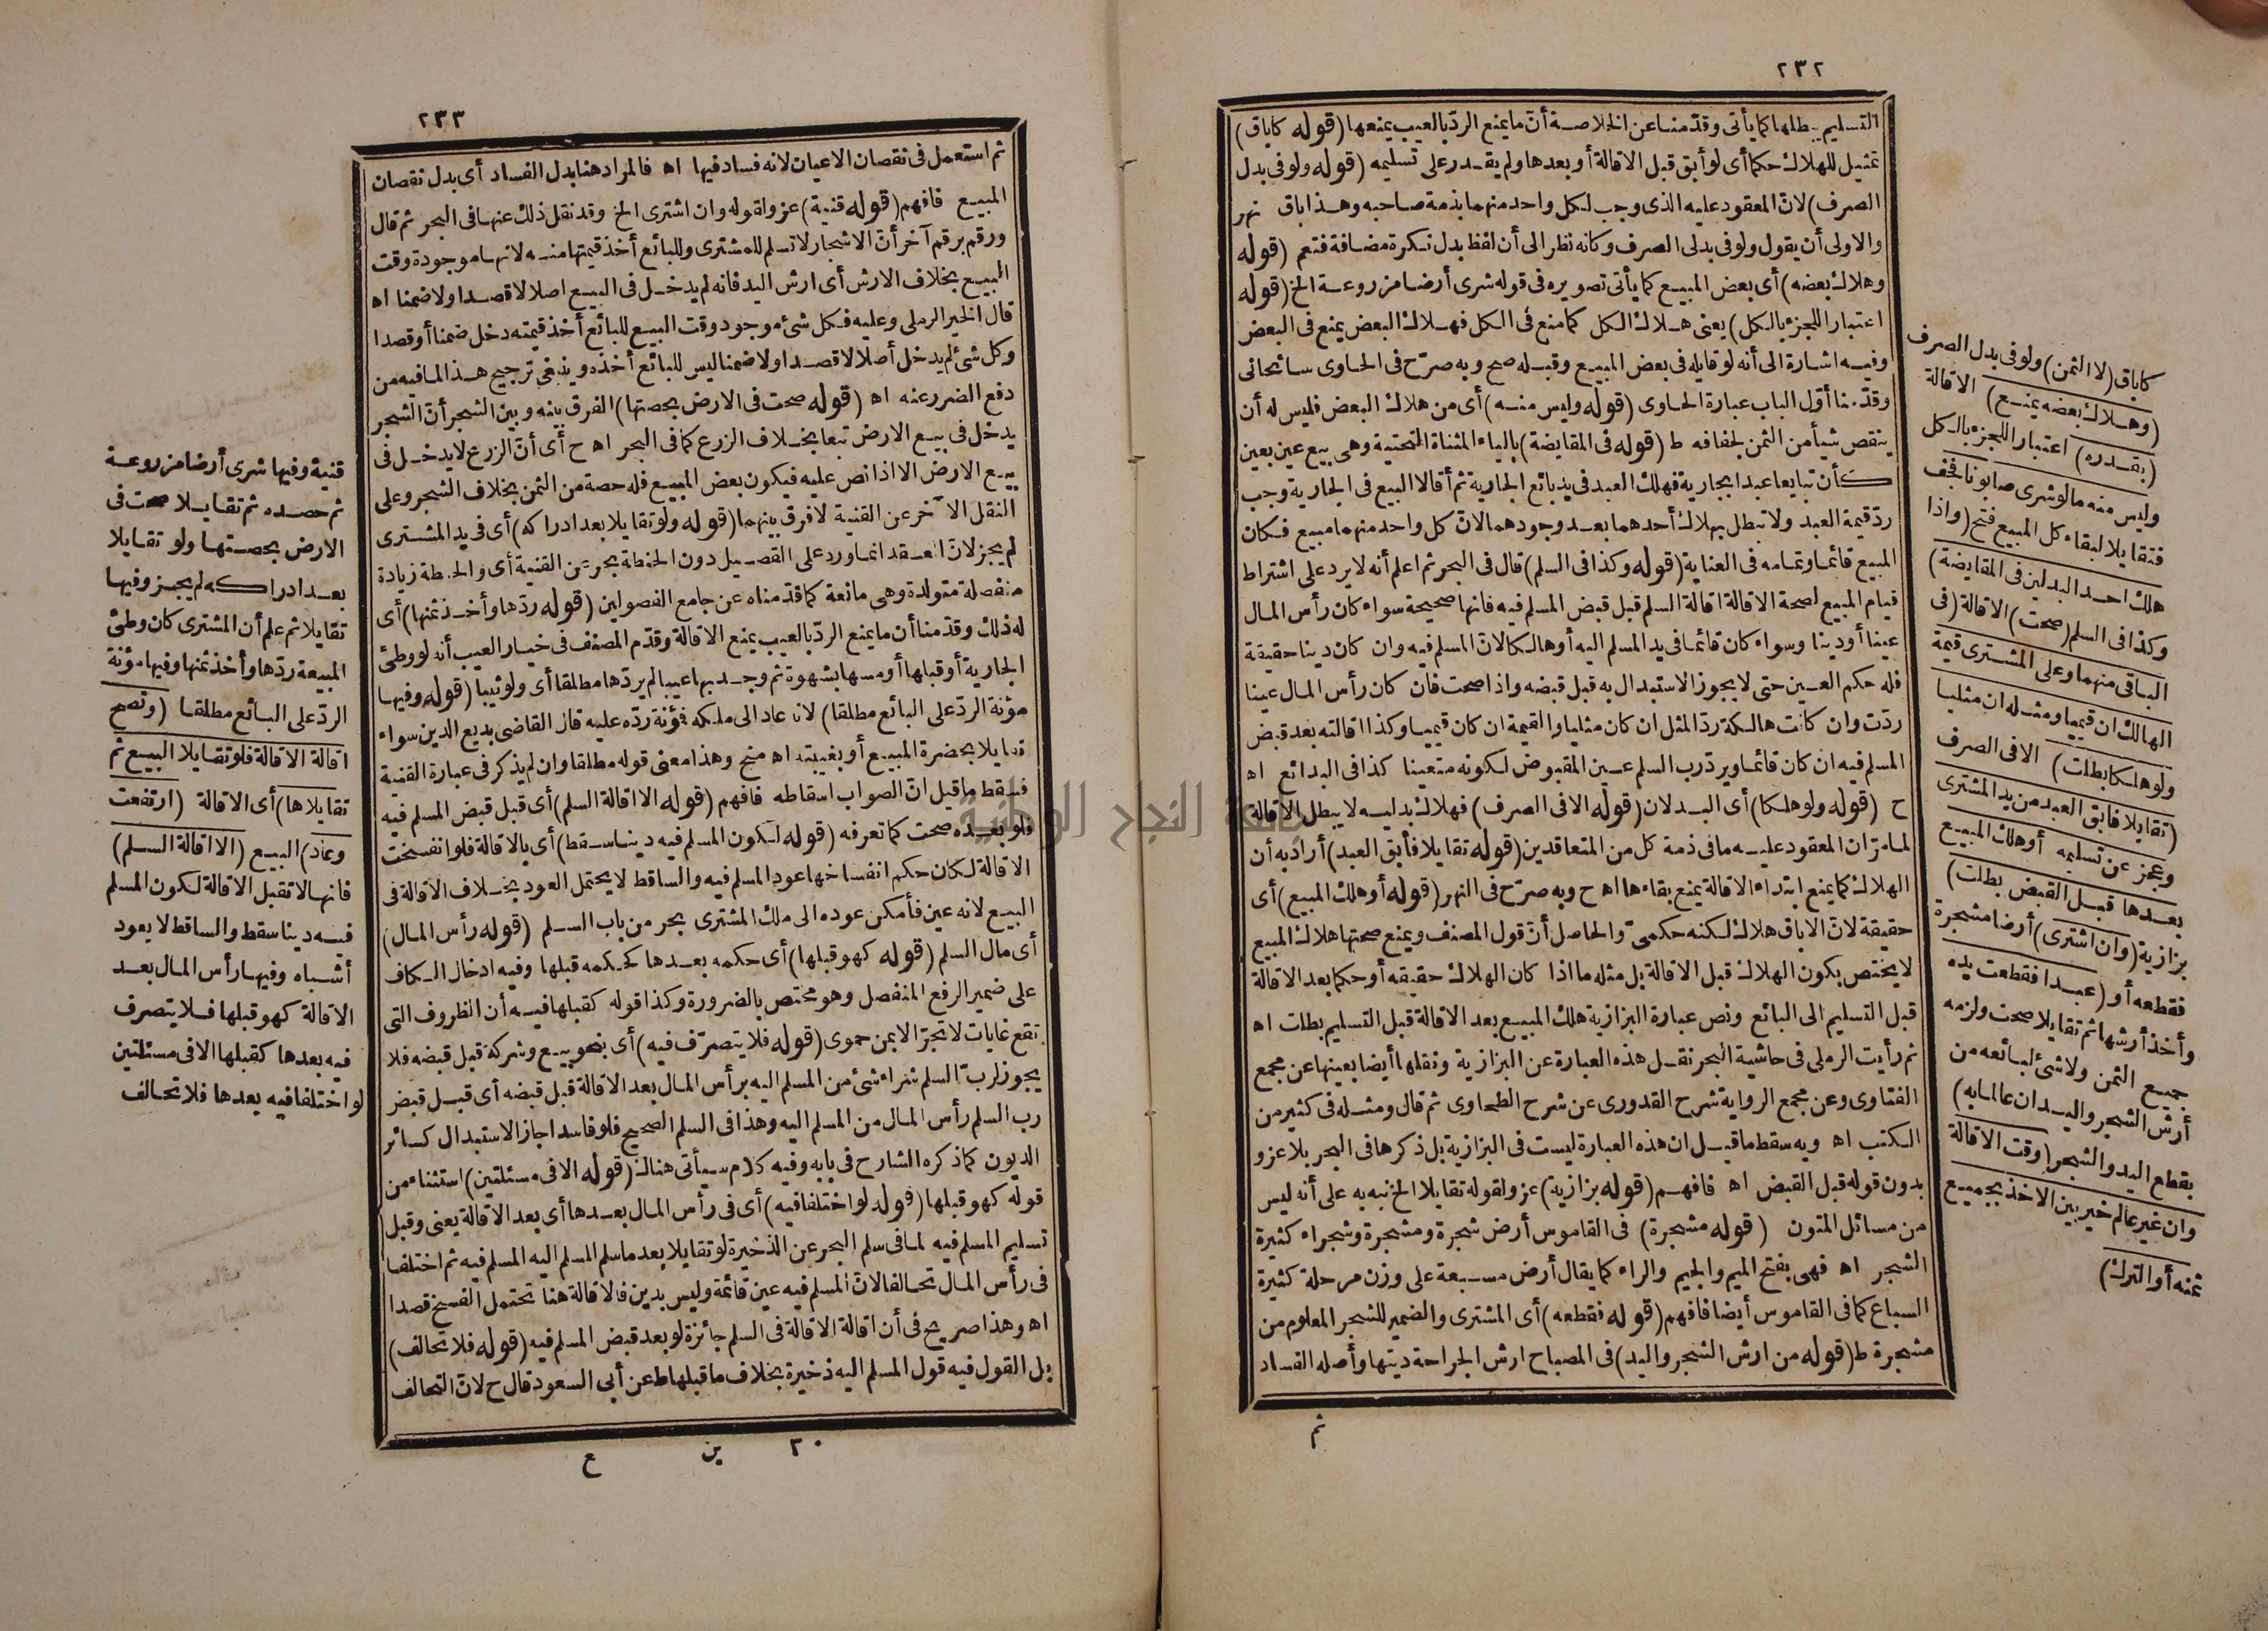 ٢٣٢
التسليم يبطلها كما يأتى وقدّمنا عن الخلاصة أنّ ما يمنع الردّ بالعيب يمنعها (قوله كاباق)
تمثيل للهلاك حكما أى لو أبق قبل الاقالة أو بعدها ولم يقدر على تسليمه (قوله ولو فى بدل
الصرف) لانّ المعقود عليه الذى وجب لكل واحد منهما بذمة صاحبه وهذا باق نهر
والاولى أن يقول ولو فى بدلى الصرف وكانه نظر الى أن لفظ بدل نكرة مضافة فتعم (قوله
وهلاك بعضه) أى بعض المبيع كما يأتى تصويره فى قوله شرى أرضا مزروعة الخ (قوله
اعتبار اللجزء بالكل) يعنى هلاك الكل كما منع فى الكل فهلاك البعض يمنع فى البعض
وفيه اشارة الى أنه لو قايله فى بعض المبيع وقبله صح وبه صرّح فى الحاوى سائحانى
وقدّمنا أوّل الباب عبارة الحاوى (قوله وليس منه) أى من هلاك البعض فليس له أن
ينقص شيأ من الثمن لجفافه ط (قوله فى المقايضة) بالياء المثناة التحتية وهى بيع عين بعين
كأن تبايعا عبدا بجارية فهلك العبد فى يد بائع الجارية ثم أقالا البيع فى الجارية وجب
ردّ قيمة العبد ولا تبطل بهلاك أحدهما بعد وجودهما لانّ كل واحد منهما مبيع فكان
المبيع قائما وتمامه فى العناية (قوله وكذا فى السلم) قال فى البحر ثم اعلم أنه لا يرد على اشتراط
قيام المبيع لصحة الاقالة اقالة السلم قبل قبض المسلم فيه فانها صحيحة سواء كان رأس المال
عينا أو دينا وسواء كان قائما فى يد المسلم اليه أو هالكا لانّ المسلم فيه وان كان دينا حقيقة
فله حكم العين حتى لا يجوز الاستبدال به قبل قبضه واذا صحت فان كان رأس المال عينا
ردّت وان كانت هالكة ردّ المثل ان كان مثليا والقيمة ان كان قيميا وكذا اقالته بعد قبض
المسلم فيه ان كان قائما ويردّ رب السلم عين المقبوض لكونه متعينا كذا فى البدائع اه
ح (قوله ولو هلكا) أى البدلان (قوله الا فى الصرف) فهلاك بدليه لا يبطل الاقالة
لما مرّ ان المعقود عليه ما فى ذمة كل من المتعاقدين (قوله تقايلا فأبق العبد) أراد به أن
الهلاك كما يمنع ابتداء الاقالة يمنع بقاءها اه ح وبه صرّح فى النهر (قوله أو هلك المبيع) أى
حقيقة لانّ الاباق هلاك لكنه حكمىّ والحاصل أنّ قول المصنف ويمنع صحتها هلاك المبيع
لا يختص بكون الهلاك قبل الاقالة بل مثله ما اذا كان الهلاك حقيقه أو حكما بعد الاقالة
قبل التسليم الى البائع ونص عبارة البزازية هلك المبيع بعد الاقالة قبل التسليم بطلت اه
ثم رأيت الرملى فى حاشية البحر نقل هذه العبارة عن البزازية ونقلها أيضا بعينها عن مجمع
الفتاوى وعن مجمع الرواية شرح القدورى عن شرح الطحاوى ثم قال ومثله فى كثير من
الكتب اه وبه سقط ما قيل ان هذه العبارة ليست فى البزازية بل ذكرها فى البحر بلا عزو
بدون قوله قبل القبض اه فافهم (قوله بزازية) عزو لقوله تقايلا الخ نبه به على أنه ليس
من مسائل المتون (قوله مشجرة) فى القاموس أرض شجرة ومشجرة وشجراء كثيرة
الشجر اه فهى بفتح الميم والجيم والراء كما يقال أرض مسبعة على وزن مرحلة كثيرة
السباع كما فى القاموس أيضا فافهم (قوله فقطعه) أى المشترى والضمير للشجر المعلوم من
مشجرة ط (قوله من ارش الشجر واليد) فى المصباح ارش الجراحة ديتها وأصله الفساد
ثم
كاباق (لا الثمن) ولو فى بدل الصرف
(وهلاك بعضه يمنع) الاقالة
(بقدره) اعتبار اللجزء بالكل
وليس منه ما لو شرى صابونا فجف
فتقايلا لبقاء كل المبيع فتح (واذا
هلك احد البدلين فى المقايضة)
وكذا فى السلم (صحت) الاقالة (فى
الباقى منهما وعلى المشترى قيمة
الهالك ان قيميا ومثله ان مثليا
ولو هلكا بطلت) الا فى الصرف
(تقايلا فابق العبد من يد المشترى
وعجز عن تسليمه أو هلك المبيع
بعدها قبل القبض بطلت)
بزازية (وان اشترى) أرضا مشجرة
فقطعه أو (عبدا فقطعت يده
وأخذ أرشها ثم تقايلا صحت ولزمه
جميع الثمن ولا شئ لبائعه من
أرش الشجر واليد ان عالما به)
بقطع اليد والشجر (وقت الاقالة
وان غير عالم خير بين الاخذ بجميع
ثمنه أو الترك)
٢٣٣
ثم استعمل فى نقصان الاعيان لانه فساد فيها اه فالمراد هنا بدل الفساد أى بدل نقصان
المبيع فافهم (قوله قنية) عزو لقوله وان اشترى الخ وقد نقل ذلك عنها فى البحر ثم قال
ورقم برقم آخر أنّ الاشجار لا تسلم للمشترى وللبائع أخذ قيمتها منه لانها موجودة وقت
البيع بخلاف الارش أى ارش اليد فانه لم يدخل فى البيع اصلا لا قصدا ولا ضمنا اه
قال الخير الرملى وعليه فكل شئ موجود وقت البيع للبائع أخذ قيمته دخل ضمنا أو قصدا
وكل شئ لم يدخل أصلا لا قصدا ولا ضمنا ليس للبائع أخذه وينبغى ترجيح هذا لما فيه من
دفع الضرر عنه اه (قوله صحت فى الارض بحصتها) الفرق بينه وبين الشجر أنّ الشجر
يدخل فى بيع الارض تبعا بخلاف الزرع كما فى البحر اه ح أى أنّ الزرع لا يدخل فى
بيع الارض الا اذا نص عليه فيكون بعض المبيع فله حصة من الثمن بخلاف الشجر وعلى
النقل الآخر عن القنية لا فرق بينهما (قوله ولو تقايلا بعد ادراكه) أى فى يد المشترى
لم يجز لانّ العقد انما ورد على القصيل دون الحنطة بحر عن القنية أى والحنطة زيادة
منفصلة متولدة وهى مانعة كما قدّمناه عن جامع الفصولين (قوله ردّها وأخذ ثمنها) أى
له ذلك وقدّمنا أن ما يمنع الردّ بالعيب يمنع الاقالة وقدّم المصنف فى خيار العيب أنه لو وطئ
الجارية أو قبلها أو مسها بشهوة ثم وجد بها عيبا لم يردّها مطلقا أى ولو ثيبا (قوله وفيها
مؤنة الردّ على البائع مطلقا) لانه عاد الى ملكه فمؤنة ردّه عليه قال القاضى بديع الدين سواء
تقايلا بحضرة المبيع أو بغيبته اه منح وهذا معنى قوله مطلقا وان لم يذكر فى عبارة القنية
فسقط ما قيل انّ الصواب اسقاطه فافهم (قوله الا اقالة السلم) أى قبل قبض المسلم فيه
فلو بعده صحت كما تعرفه (قوله لكون المسلم فيه دينا سقط) أى بالاقالة فلو انفسخت
الاقالة لكان حكم انفساخها عود المسلم فيه والساقط لا يحتمل العود بخلاف الاقالة فى
البيع لانه عين فأمكن عوده الى ملك المشترى بحر من باب السلم (قوله رأس المال)
أى مال السلم (قوله كهو قبلها) أى حكمه بعدها كحكمه قبلها وفيه ادخال الكاف
على ضمير الرفع المنفصل وهو مختص بالضرورة وكذا قوله كقبلها فيه أن الظروف التى
تقع غايات لا تجرّ الا بمن حموى (قوله فلا يتصرّف فيه) أى بنحو بيع وشركة قبل قبضه فلا
يجوز لربّ السلم شراء شئ من المسلم اليه برأس المال بعد الاقالة قبل قبضه أى قبل قبض
رب السلم رأس المال من المسلم اليه وهذا فى السلم الصحيح فلو فاسدا جاز الاستبدال كسائر
الديون كما ذكره الشارح فى بابه وفيه كلام سيأتى هناك (قوله الا فى مسئلتين) استثناء من
قوله كهو قبلها (قوله لو اختلفا فيه) أى فى رأس المال بعدها أى بعد الاقالة يعنى وقبل
تسليم المسلم فيه لما فى سلم البحر عن الذخيرة لو تقايلا بعد ما سلم المسلم اليه المسلم فيه ثم اختلفا
فى رأس المال تحالفا لانّ المسلم فيه عين قائمة وليس بدين فالاقالة هنا تحتمل الفسخ قصدا
اه وهذا صريح فى أن اقالة الاقالة فى السلم جائزة لو بعد قبض المسلم فيه (قوله فلا تحالف)
بل القول فيه قول المسلم اليه ذخيرة بخلاف ما قبلها ط عن أبى السعود قال ح لانّ التحالف
٣٠ ين ع
قنية وفيها شرى أرضا مزروعة
ثم حصده ثم تقايلا صحت فى
الارض بحصتها ولو تقايلا
بعد ادراكه لم يجز وفيها
تقايلا ثم علم أن المشترى كان وطئ
المبيعة ردّها وأخذ ثمنها وفيها مؤنة
الردّ على البائع مطلقا (وتصح
اقالة الاقالة فلو تقايلا البيع ثم
تقايلاها) أى الاقالة (ارتفعت
وعاد) البيع (الا اقالة السلم)
فانها لا تقبل الاقالة لكون المسلم
فيه دينا سقط والساقط لا يعود
أشباه وفيها رأس المال بعد
الاقالة كهو قبلها فلا يتصرف
فيه بعدها كقبلها الا فى مسئلتين
لو اختلفا فيه بعدها فلا تحالف
جامعة النجاح الوطنية